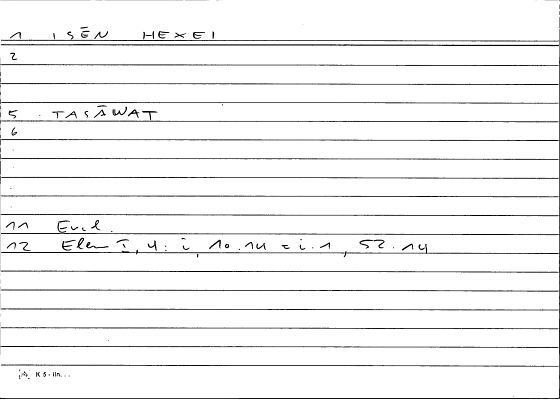 1 ISĒN HEXEI
2
5 TASĀWAT
6
11 Eucl.
12 Elem I, 4: i, 10.14 = i.1, 52.14
K 5 - lin...